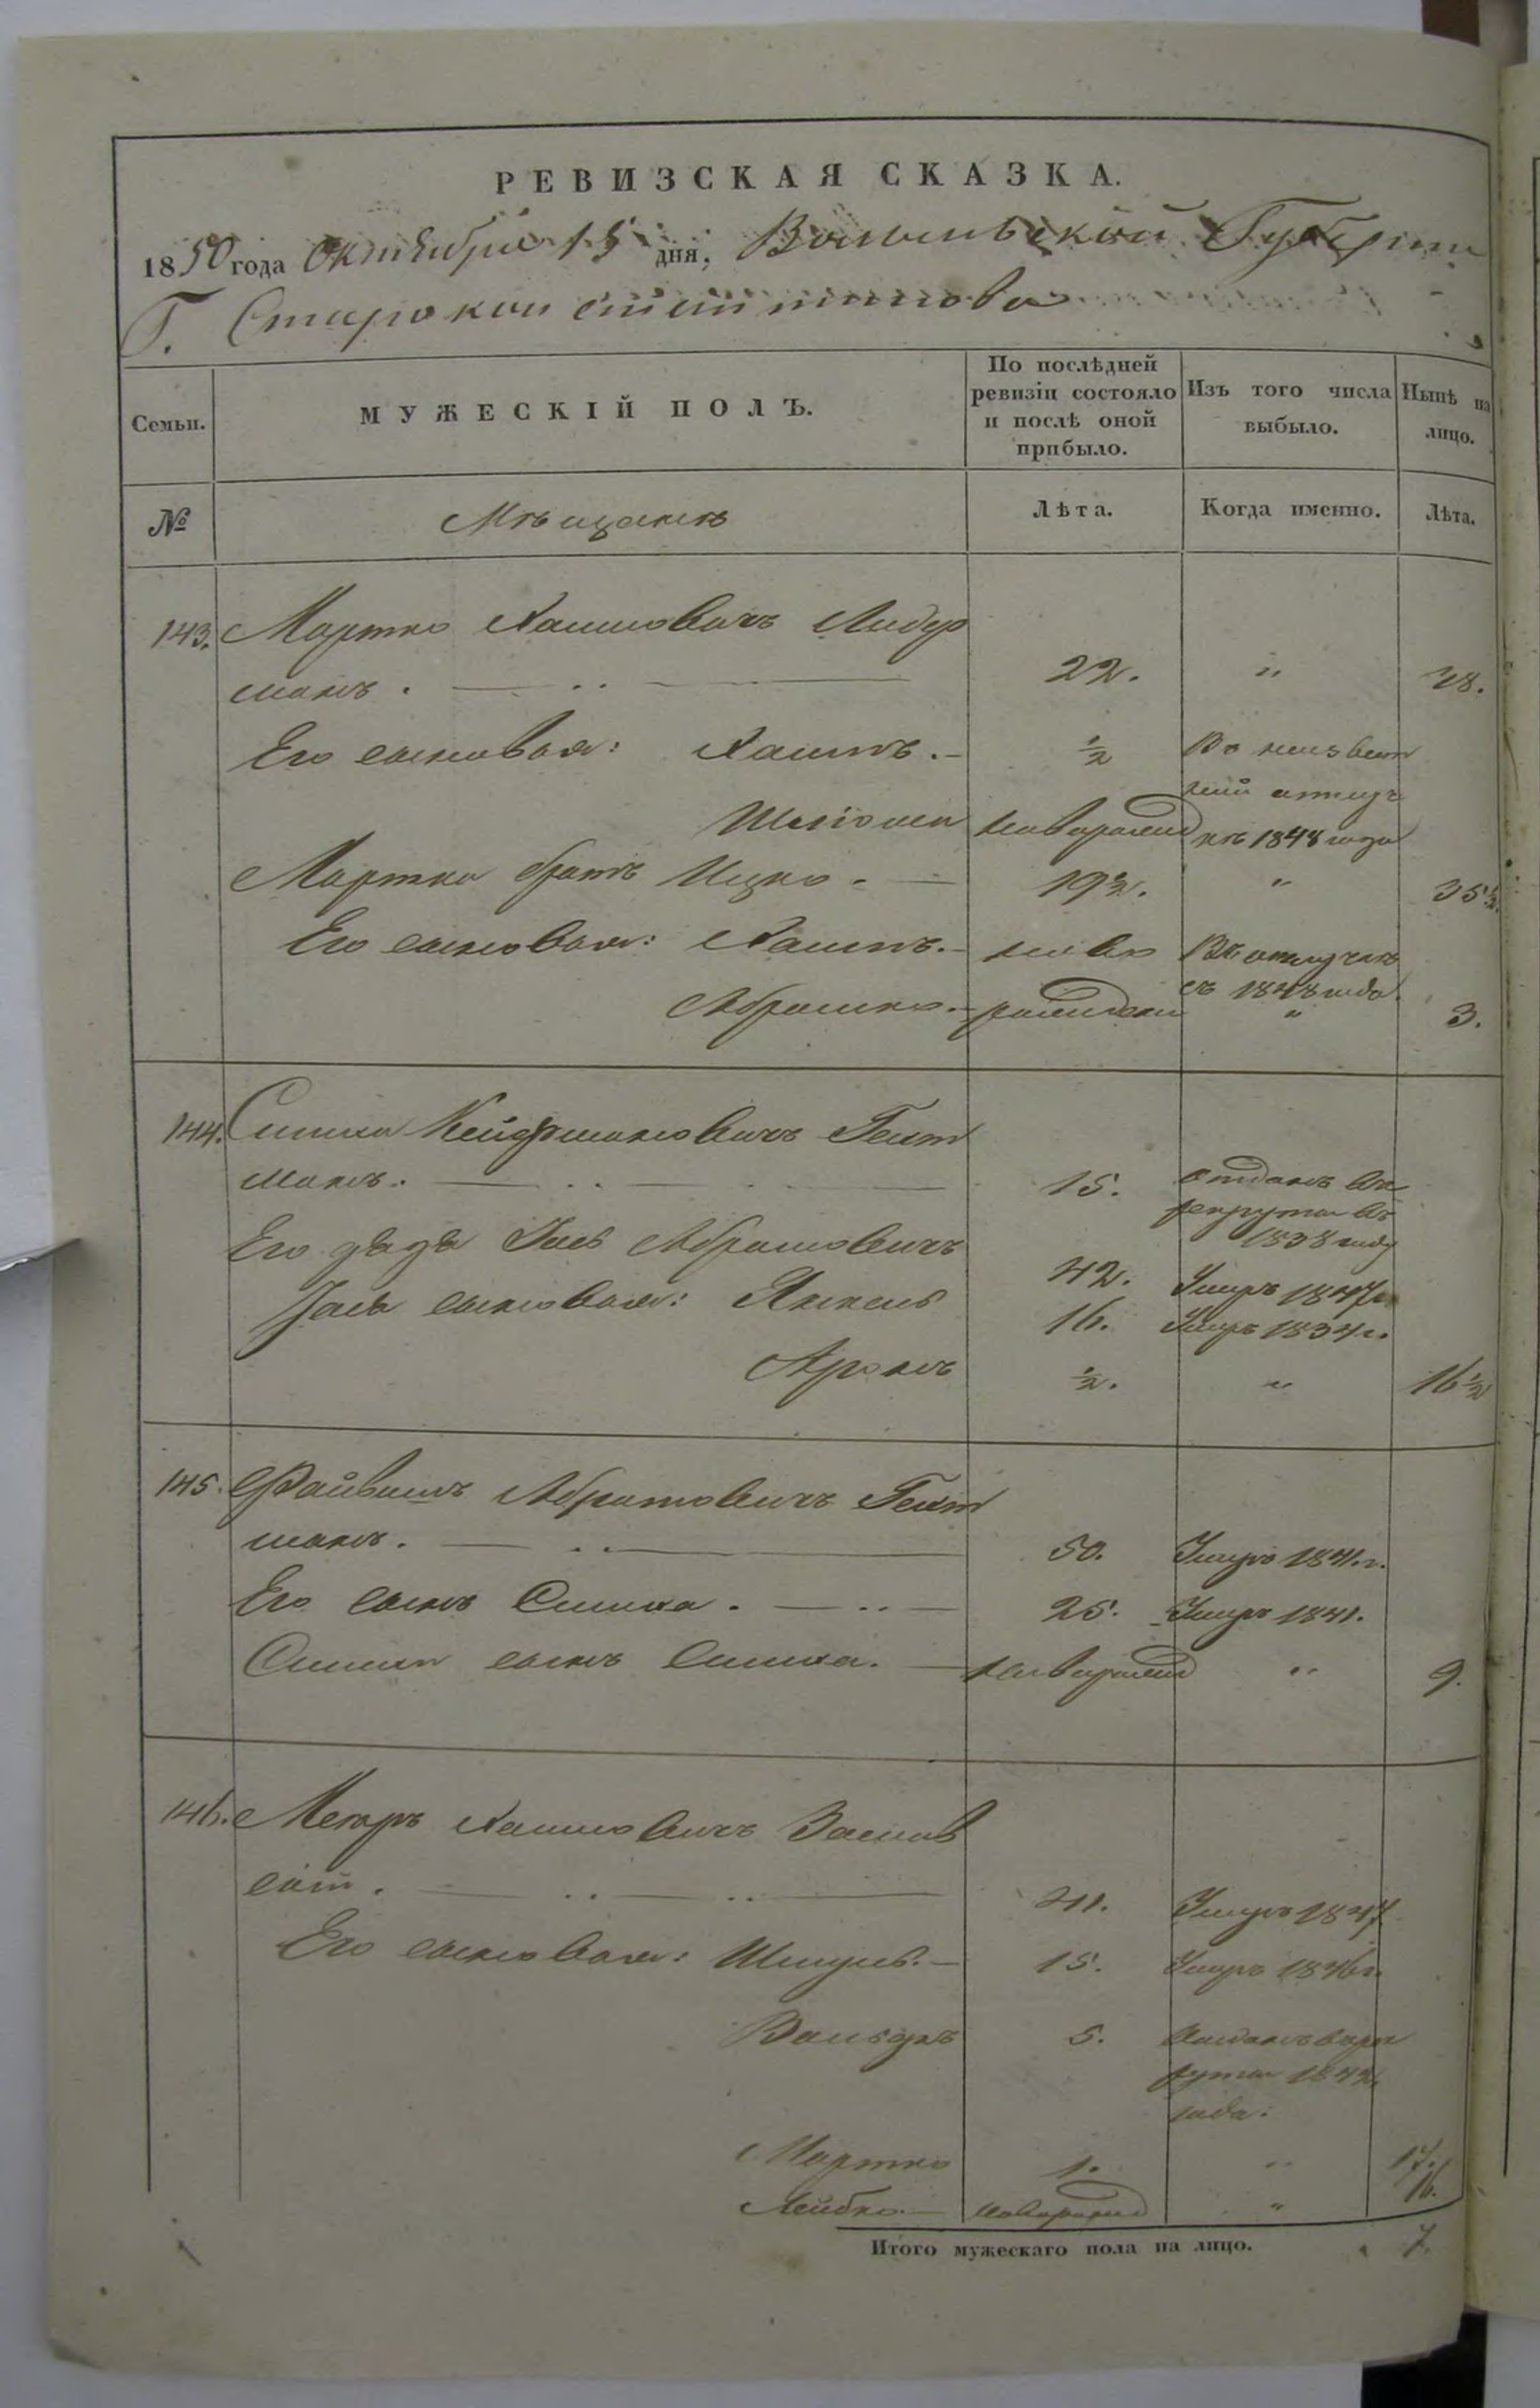 РЕВИЗСКАЯ СКАЗКА.
1850 года Октября 15 дня, Волынской Губернии
Г. Староконстантинова
Семьи. МУЖЕСКІЙ ПОЛЪ. По послѣдней ревизіи состояло и послѣ оной прибыло. Изъ того числа выбыло. Нынѣ на лицо.
№ Мѣщанъ Лѣта. Когда именно. Лѣта.
143. Мортко Хаимовичъ Лидер
манъ. 22. "
Его сыновья: Хаимъ. ½ Во неизвест
ной отлуч
Шліома новорожд кѣ 1848 года
Мортка братъ Ицко. 19½. " 35½.
Его сыновья: Хаимъ. ново Въ отлучкѣ
съ 1848 года.
Абрамко. рожденн " 3.
144. Симха Кейфмановичъ Гехт
манъ. 15. отданъ въ
рекруты въ
1838 году
Его дядя Іось Абрамовичъ 42. Умръ 1847г.
Іося сыновья: Янкель 16. Умръ 1834г.
Аронъ ½. " 16½
145. Файвишъ Абрамовичъ Гехт
манъ. 50. Умръ 1841.г.
Его сынъ Симха. 25. Умръ 1841.
Симхи сынъ Симха. новорожд " 9.
146. Мекеръ Хаимовичъ Заслав
скій. 41. Умръ 1847
Его сыновья: Шмуль. 15. Умръ 1846г.
Вольфъ 5. Отданъ в рек
руты 1844
года.
Мортко 1. " 17.
Лейбко. новорожд " 16.
Итого мужескаго пола на лицо. 7.